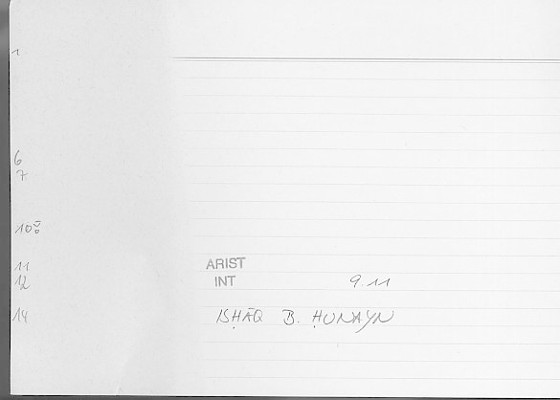 1
6
7
10
11
12
14
ARIST
INT 9.11
ISḤĀQ B. ḤUNAYN